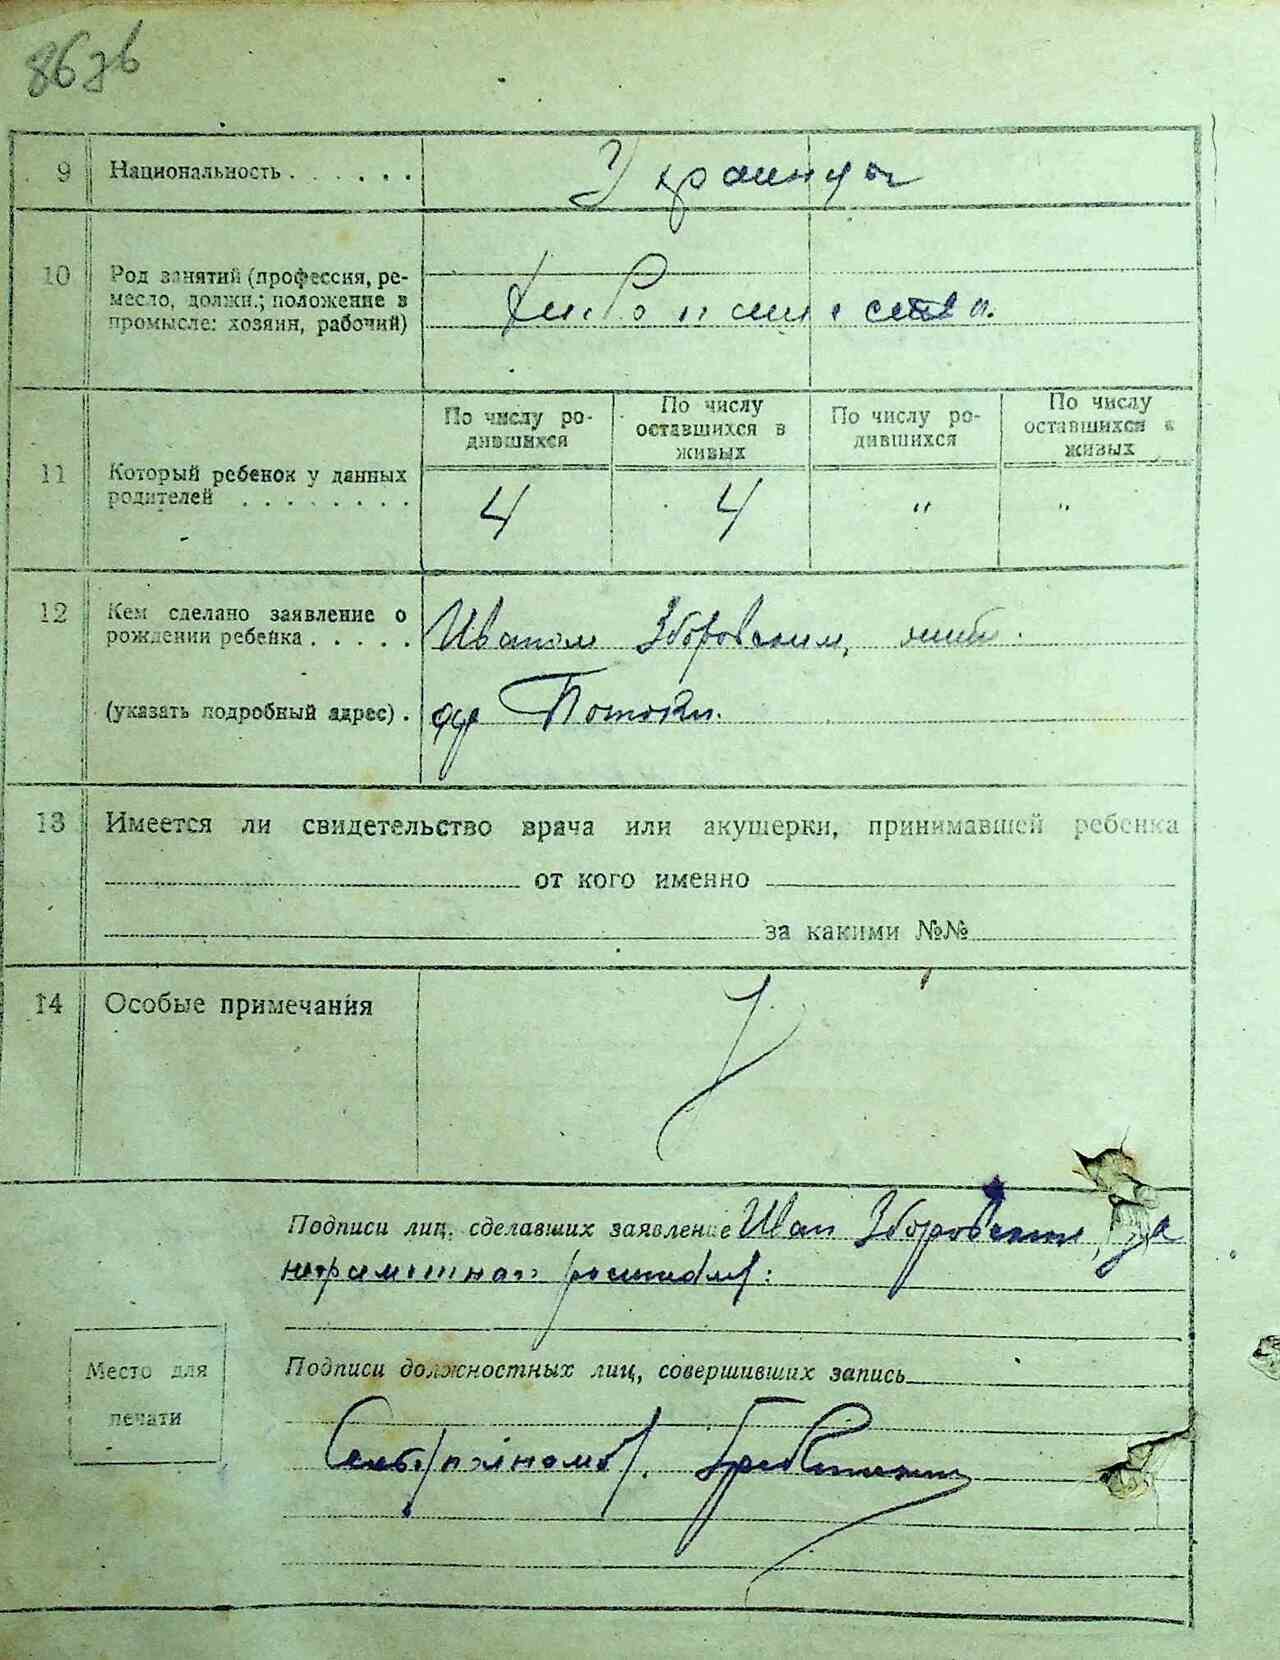 86
9 Национальность . . . . . . Украинцы
10 Род занятий (профессия, ре-
месло, должн.; положение в
промысле: хозяин, рабочий)
Хлебопашества.
По числу ро-
дившихся
По числу
оставшихся в
живых
По числу ро-
дившихся
По числу
оставшихся в
живых
11 Который ребенок у данных
родителей . . . . . . . .
4 4 " "
12 Кем сделано заявление о
рождении ребенка . . . . . Иваном Зборовским, жит.
(указать подробный адрес) . Потоки.
13 Имеется ли свидетельство врача или акушерки, принимавшей ребенка
от кого именно
за какими №№
14 Особые примечания
Подписи лиц, сделавших заявление Иван Зборовский, за
неграмотного
Подписи должностных лиц, совершивших запись
Место для
печати